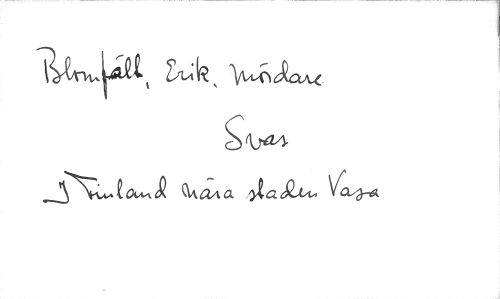 Blomfält, Erik, Mördare
Svar
I Finland nära staden Vasa